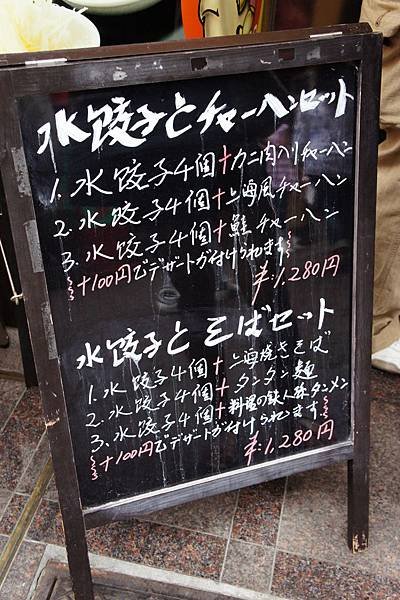 水餃子とチャーハンセット
1. 水餃子4個+カニ肉入りチャーハン
2. 水餃子4個+上海風チャーハン
3. 水餃子4個+鮭チャーハン
+100円でデザートが付けられます
¥:1,280円
水餃子とそばセット
1. 水餃子4個+上海焼きそば
2. 水餃子4個+タンタン麺
3. 水餃子4個+料理の鉄人麻タンメン
+100円でデザートが付けられます
¥:1,280円